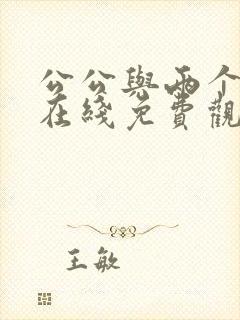 公公與兩个
在綫免費觀
王敏